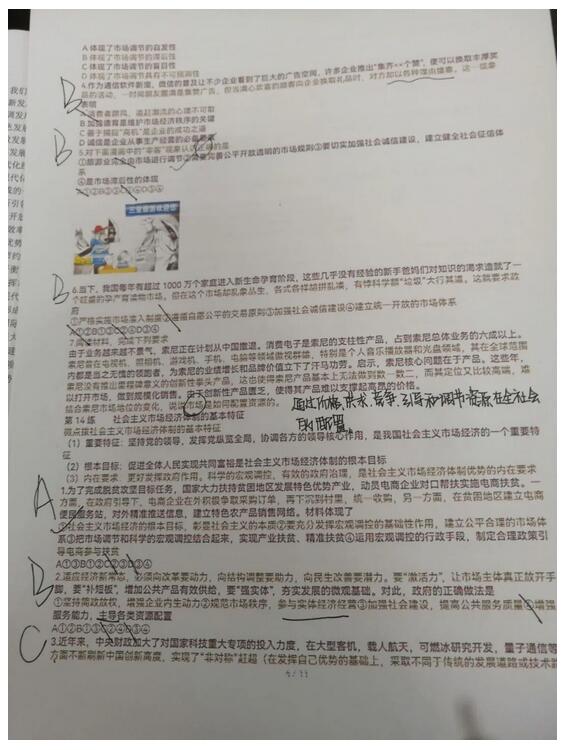 A 体现了市场调节的自发性
B 体现了市场调节的滞后性
C 体现了市场调节的盲目性
D 体现了市场调节具有不可预测性
4.作为通信软件新宠，微信的普及让不少企业看到了巨大的广告空间，许多企业推出“集齐××个赞”，便可以换取丰厚奖
品的活动，一时间朋友圈满是集赞广告，但当满心欢喜的顾客向企业换取礼品时，对方却以各种理由搪塞。这一现象
表明
A 消费者跟风、追赶潮流的心理不可取
B 加强诚信是维护市场经济秩序的关键
C 善于捕捉“商机”是企业的成功之道
D 诚信是企业从事生产经营的必备要素
5.对下面漫画中的“零团”现象认识正确的是
①旅游业完全由市场进行调节②需要完善公平开放透明的市场规则③要切实加强社会诚信建设，建立健全社会征信体
系
④是市场滞后性的体现
A①②B②③C①④D③④
B
B
B
6.当下，我国每年有超过 1000 万个家庭进入新生命孕育阶段，这些几乎没有经验的新手爸妈们对知识的渴求造就了一
个旺盛的孕产育读物市场。但在这个市场却乱象丛生，各式各样胡拼乱凑、有悖科学额“垃圾”大行其道。这就要求政
府
①严格实施市场准入制度②遵循自愿公平的交易原则③加强社会诚信建设④建立统一开放的市场体系
A①②B①③C②④D③④
7.阅读材料，完成下列要求
由于业务越来越不景气，索尼正在计划从中国撤退。消费电子是索尼的支柱性产品，占到索尼总体业务的六成以上。
索尼曾在电视机、照相机、游戏机、手机、电脑等领域傲视群雄，特别是个人音乐播放器和光盘领域，其在全球范围
内都是当之无愧的领跑者，为索尼的业绩增长和品牌价值立下了汗马功劳。启示，索尼核心问题在于产品。这些年，
索尼没有推出里程碑意义的创新性拳头产品，这也使得索尼产品基本上无法做到数一数二，而其定位又比较高端，难
以打开市场，做到规模化销售。由于创新性产品匮乏，使得其产品难以支撑起高昂的价格。
结合索尼市场地位的变化，说说市场是如何配置资源的。
通过价格、供求、竞争，引导和调节资源在全社会
的配置。
第 14 练 社会主义市场经济的基本特征
微点拨社会主义市场经济体制的基本特征
（1）重要特征：坚持党的领导，发挥党纵览全局，协调各方的领导核心作用，是我国社会主义市场经济的一个重要特
征
（2）根本目标：促进全体人民实现共同富裕是社会主义市场经济的根本目标
（3）内在要求：更好发挥政府作用。科学的宏观调控、有效的政府治理，是社会主义市场经济体制优势的内在要求
A
1.为了完成脱贫攻坚目标任务，国家大力扶持贫困地区发展特色优势产业，动员电商企业对口帮扶实施电商扶贫。一
方面，在政府引导下，电商企业在外积极争取采购订单，再下沉到村里，统一收购，另一方面，在贫困地区建立电商
便民服务站，对外精准推送信息，建立特色农产品销售网络。材料体现了
①社会主义市场经济的根本目标，彰显社会主义的本质②要充分发挥宏观调控的基础性作用，建立公平合理的市场体
系③把市场调节和科学的宏观调控结合起来，实现产业扶贫、精准扶贫④运用宏观调控的行政手段，制定合理政策引
导电商参与扶贫
A①③B①④C②③D②④
B
2.适应经济新常态，必须向改革要动力，向结构调整要助力，向民生改善要潜力。要“激活力”，让市场主体真正放开手
脚，要“补短板”，增加公共产品有效供给，要“强实体”，夯实发展的微观基础。对此，政府的正确做法是
①坚持简政放权，增强企业内生动力②规范市场秩序，参与实体经济经营③加强社会建设，提高公共服务质量④增强
服务能力，主导各类资源配置
A①②B①③C②④D③④
C
3.近年来，中央财政加大了对国家科技重大专项的投入力度，在大型客机，载人航天，可燃冰研究开发，量子通信等
方面不断刷新中国创新高度，实现了“非对称”赶超（在发挥自己优势的基础上，采取不同于传统的发展道路或技术路